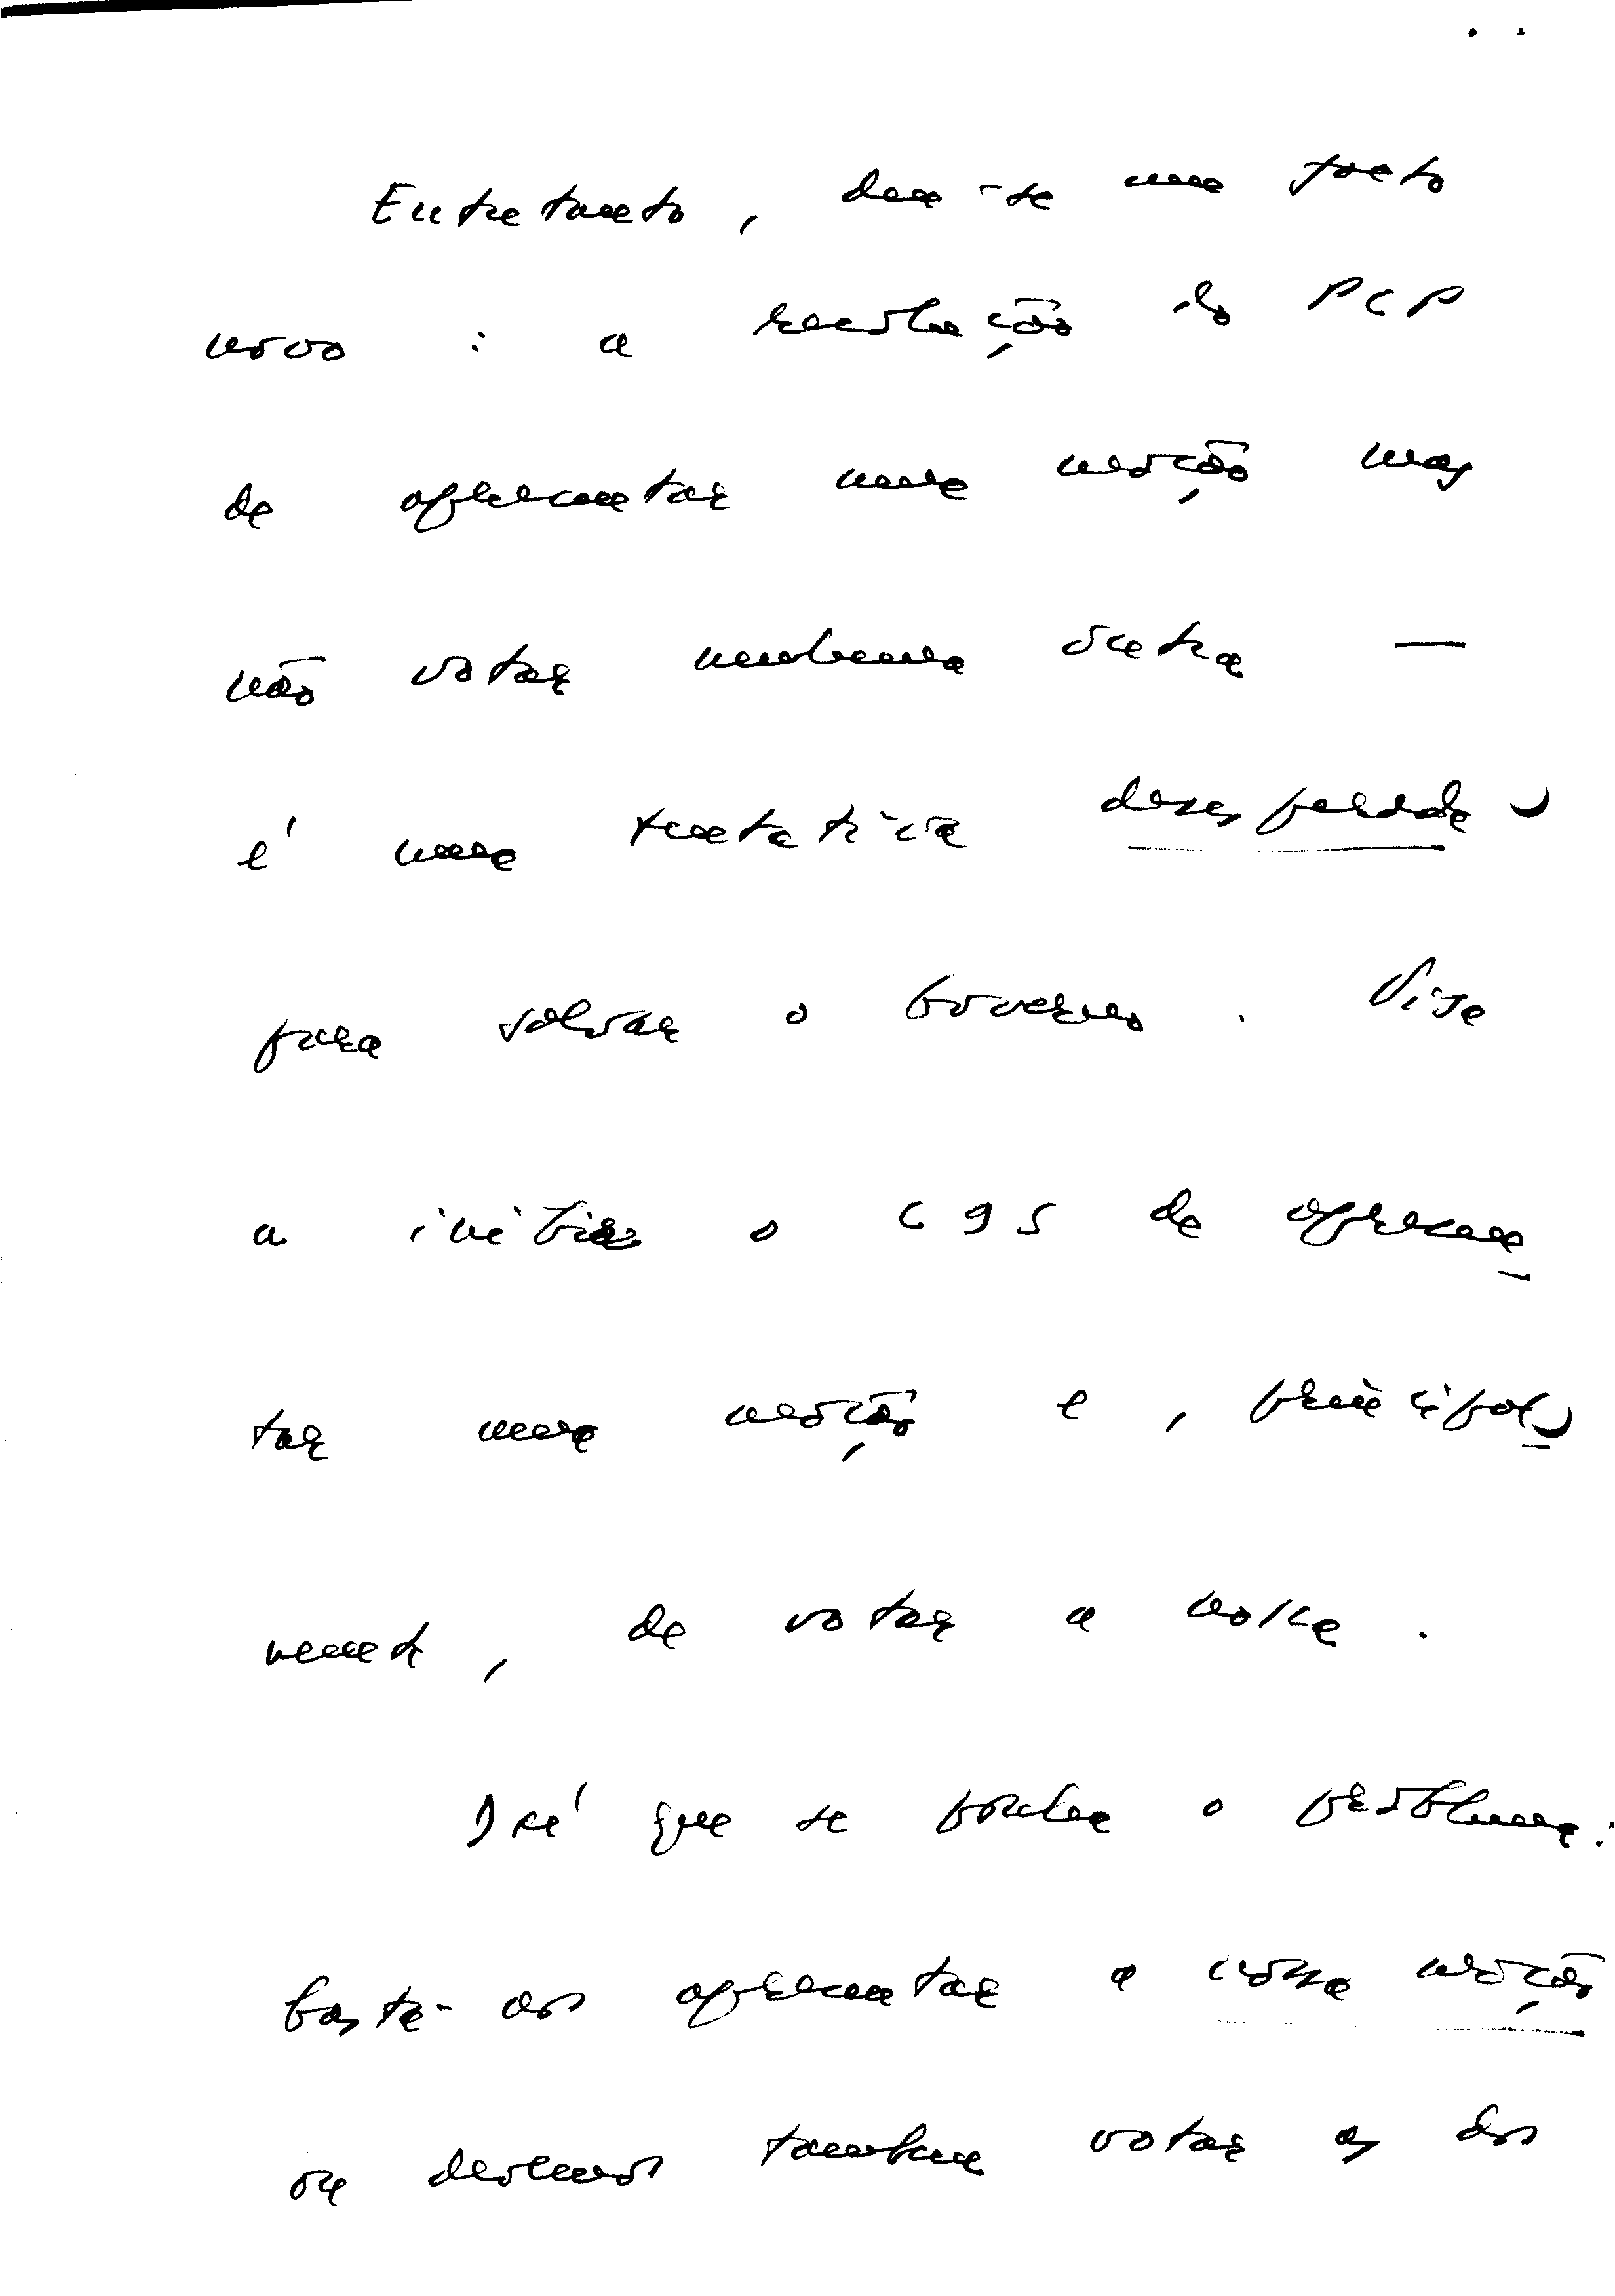 Entretanto, deu-se um facto
novo : a resolução do PCP
de apresentar uma moção mas
não votar nenhuma outra —
é uma tentativa desesperada
para salvar o Governo. Visa
a inibir o CDS de apresen
tar uma moção e, principal
mente, de votar a nossa.
Daí que se ponha o problema:
basta-nos apresentar a nossa moção
ou devemos também votar as dos